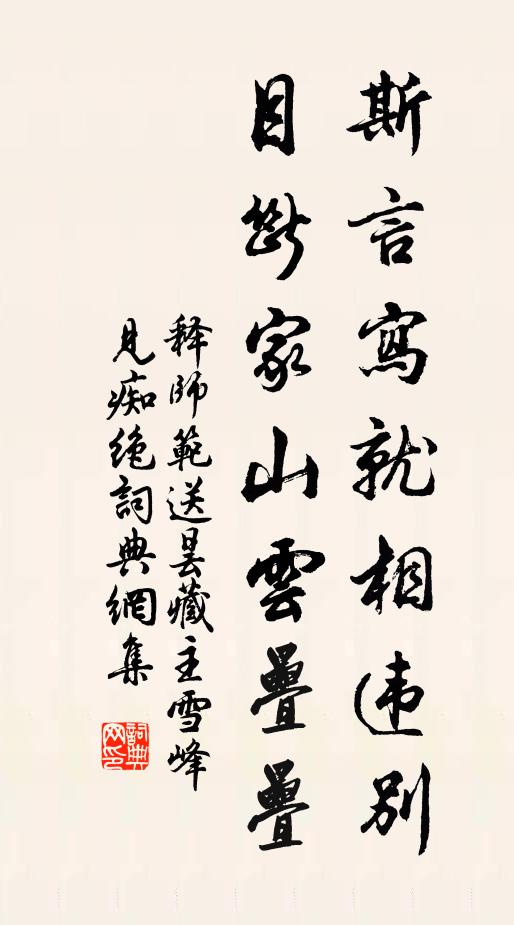 斯言寫就相违別
目斷家山雲疊疊
释師範送昙藏主雪峰
見痴绝詞典網集
詞典網印